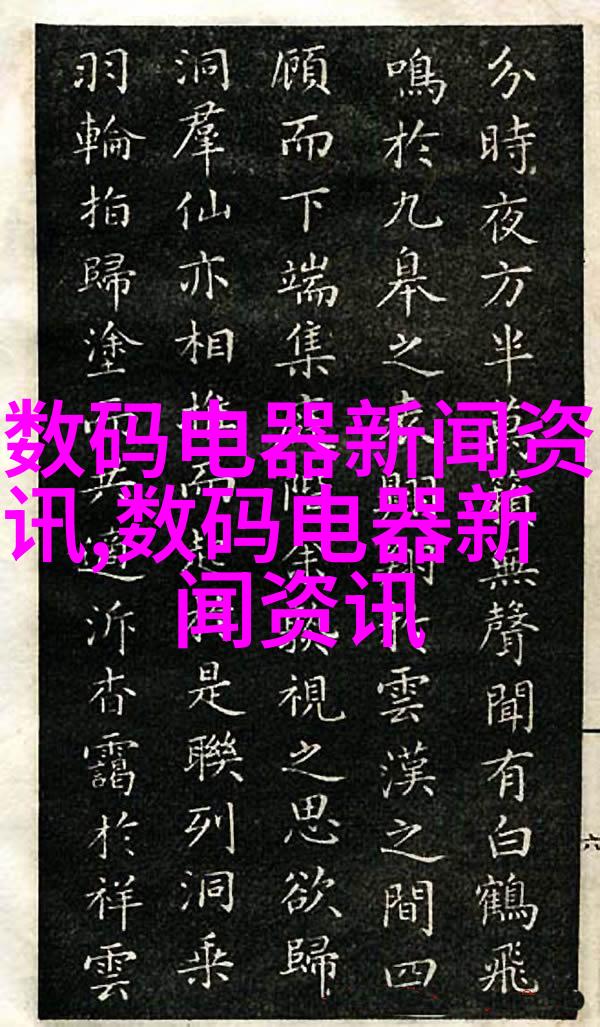 分時夜方半萬籟無聲聞有白鶴飛
鳴於九皋之表翱翔於雲漢之間四
顧而下端集視之思欲歸
洞羣仙亦相而是聯列洞乘
羽輪拍歸塗而共泝杳靄於祥雲
数码电器新闻资
讯,数码电器新
闻资讯
六